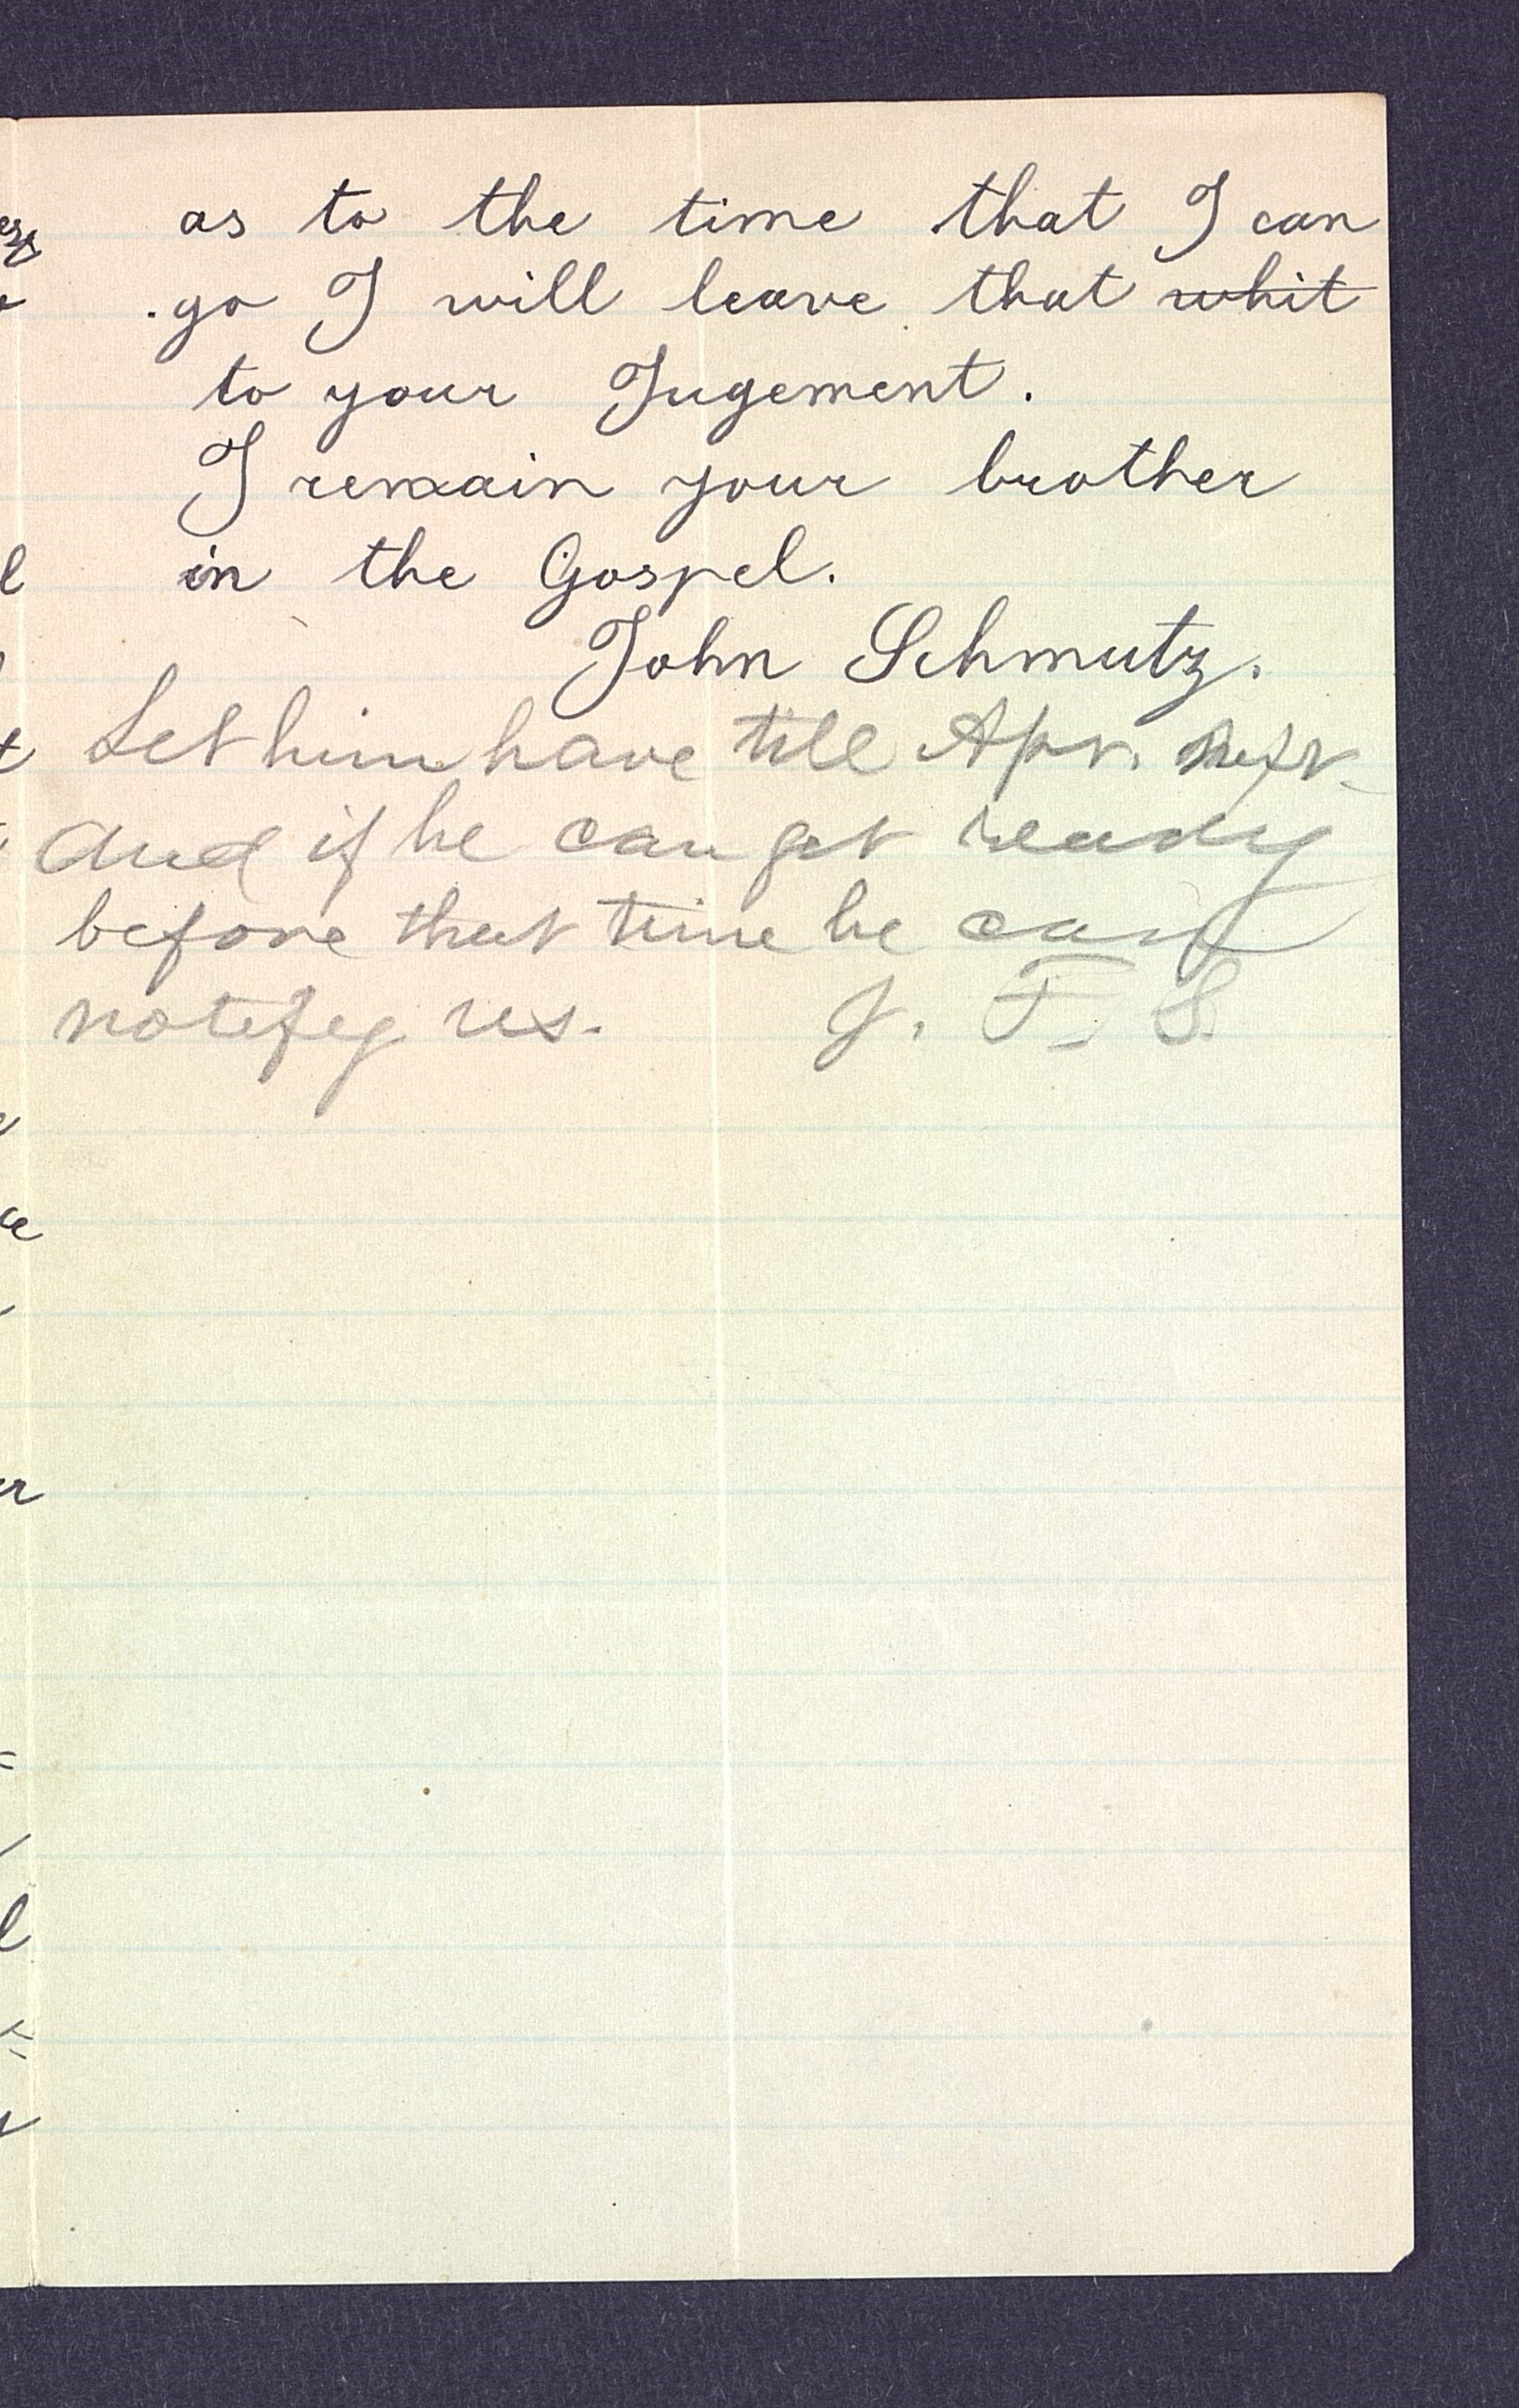 as to the time that I can
go I will leave that whit
to your Jugement.
I remain your brother
in the Gospel.
John Schmutz.
Let him have till Apr. next
And if he can get ready
before that time he can
notify us. J. F. S.